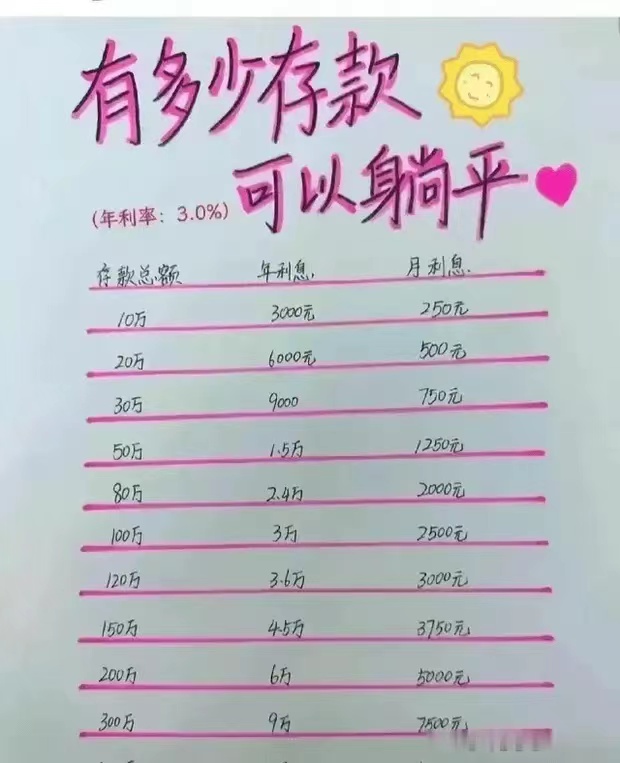 有多少存款
可以躺平
(年利率：3.0%)
存款总额 年利息 月利息
10万 3000元 250元
20万 6000元 500元
30万 9000 750元
50万 1.5万 1250元
80万 2.4万 2000元
100万 3万 2500元
120万 3.6万 3000元
150万 4.5万 3750元
200万 6万 5000元
300万 9万 7500元